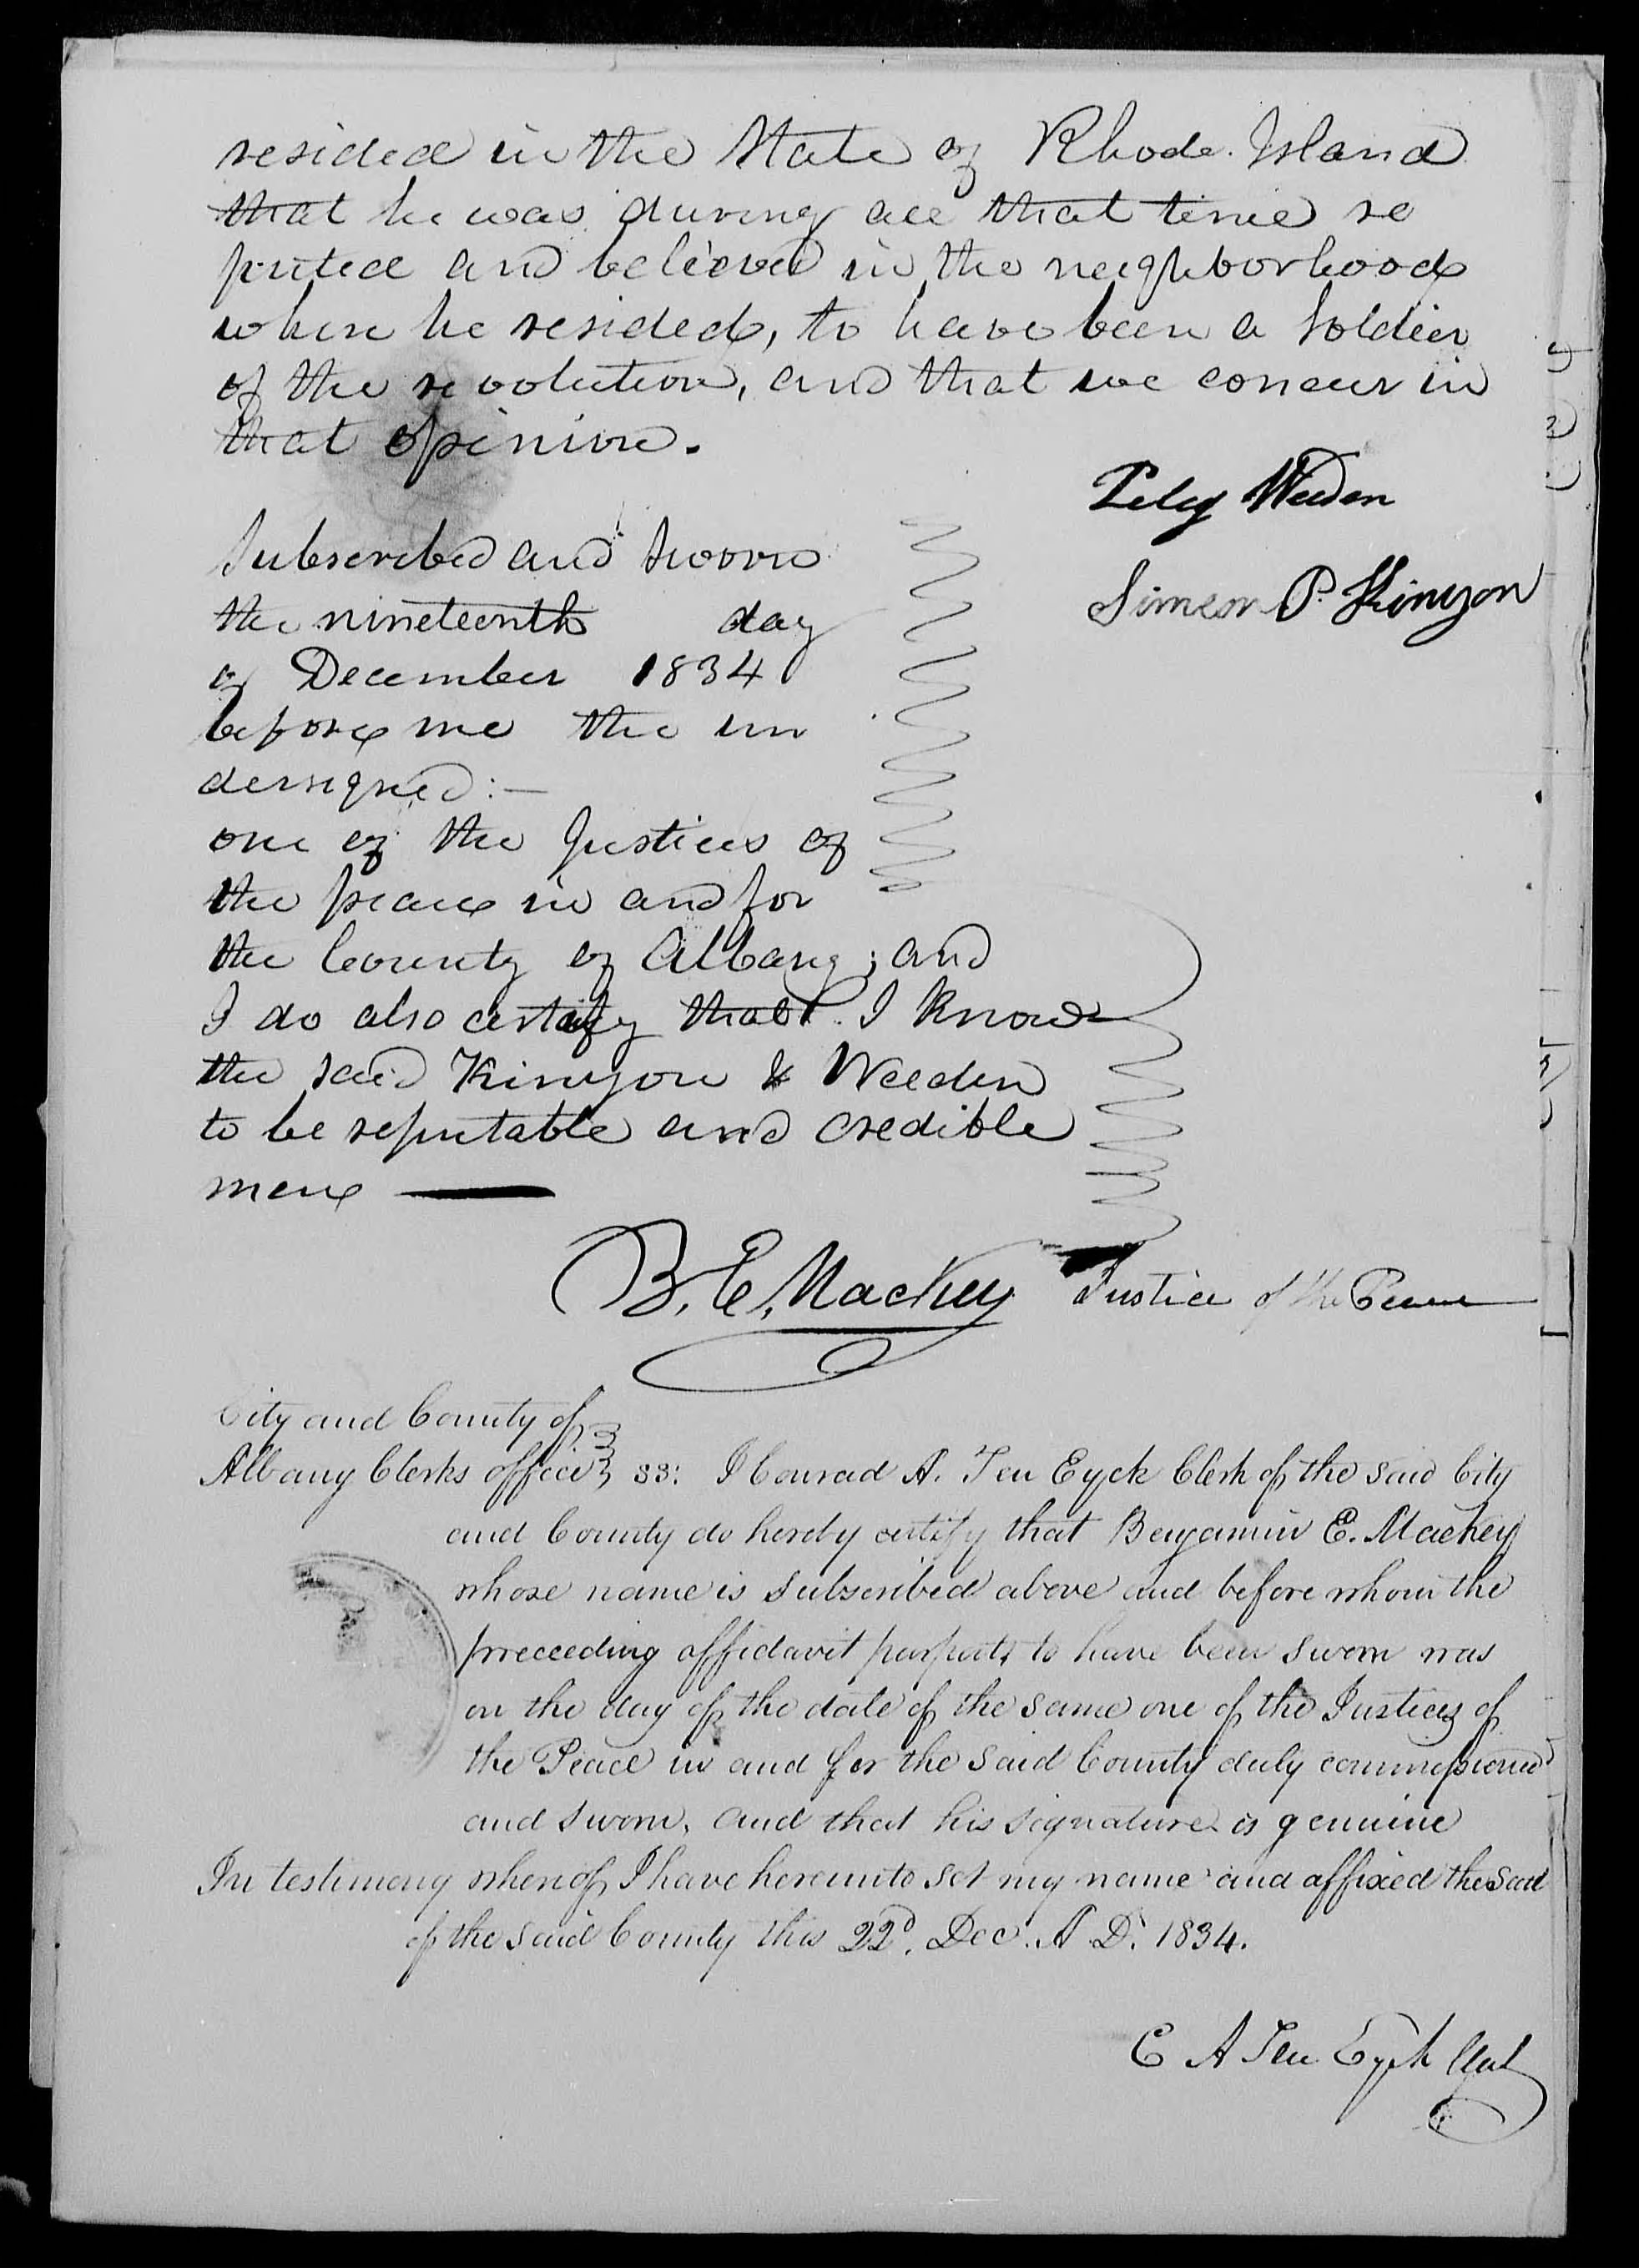 resided in the State of Rhode Island
that he was during all that time re
puted and believed in the neighborhood
where he resided, to have been a Soldier
of the revolution, and that we concur in
that opinion.
Peleg Weeden
Subscribed and Sworn
Simeon P. Kinyon
the nineteenth day
of December 1834
before me the un
dersigned:—
one of the Justices of
the peace in and for
the County of Albany; and
I do also certify that I know
the said Kinyon & Weeden
to be reputable and credible
men —
B. E. Mackey Justice of the Peace
City and County of
Albany Clerks office ss: I Conrad A. Ten Eyck Clerk of the said City
and County do hereby certify that Benjamin E. Mackey
whose name is subscribed above and before whom the
preceeding affidavit purports to have been sworn was
on the day of the date of the same one of the Justices of
the Peace in and for the said County duly commissioned
and sworn, and that his signature is genuine
In testimony whereof I have hereunto set my name and affixed the seal
of the said County this 22d. Dec. A. D. 1834.
C A Ten Eyck Clerk